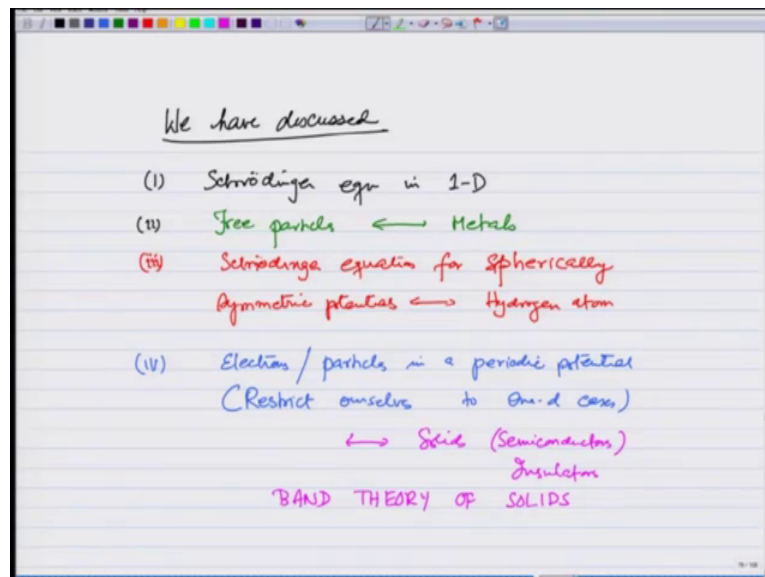 We have discussed
(i) Schrödinger eqn in 1-D
(ii) Free particles ⟷ Metals
(iii) Schrödinger equation for Spherically
Symmetric potentials ⟷ Hydrogen atom
(iv) Electrons / particles in a periodic potential
(Restrict ourselves to One-d cases)
⟷ Solids (Semiconductors)
Insulators
BAND THEORY OF SOLIDS